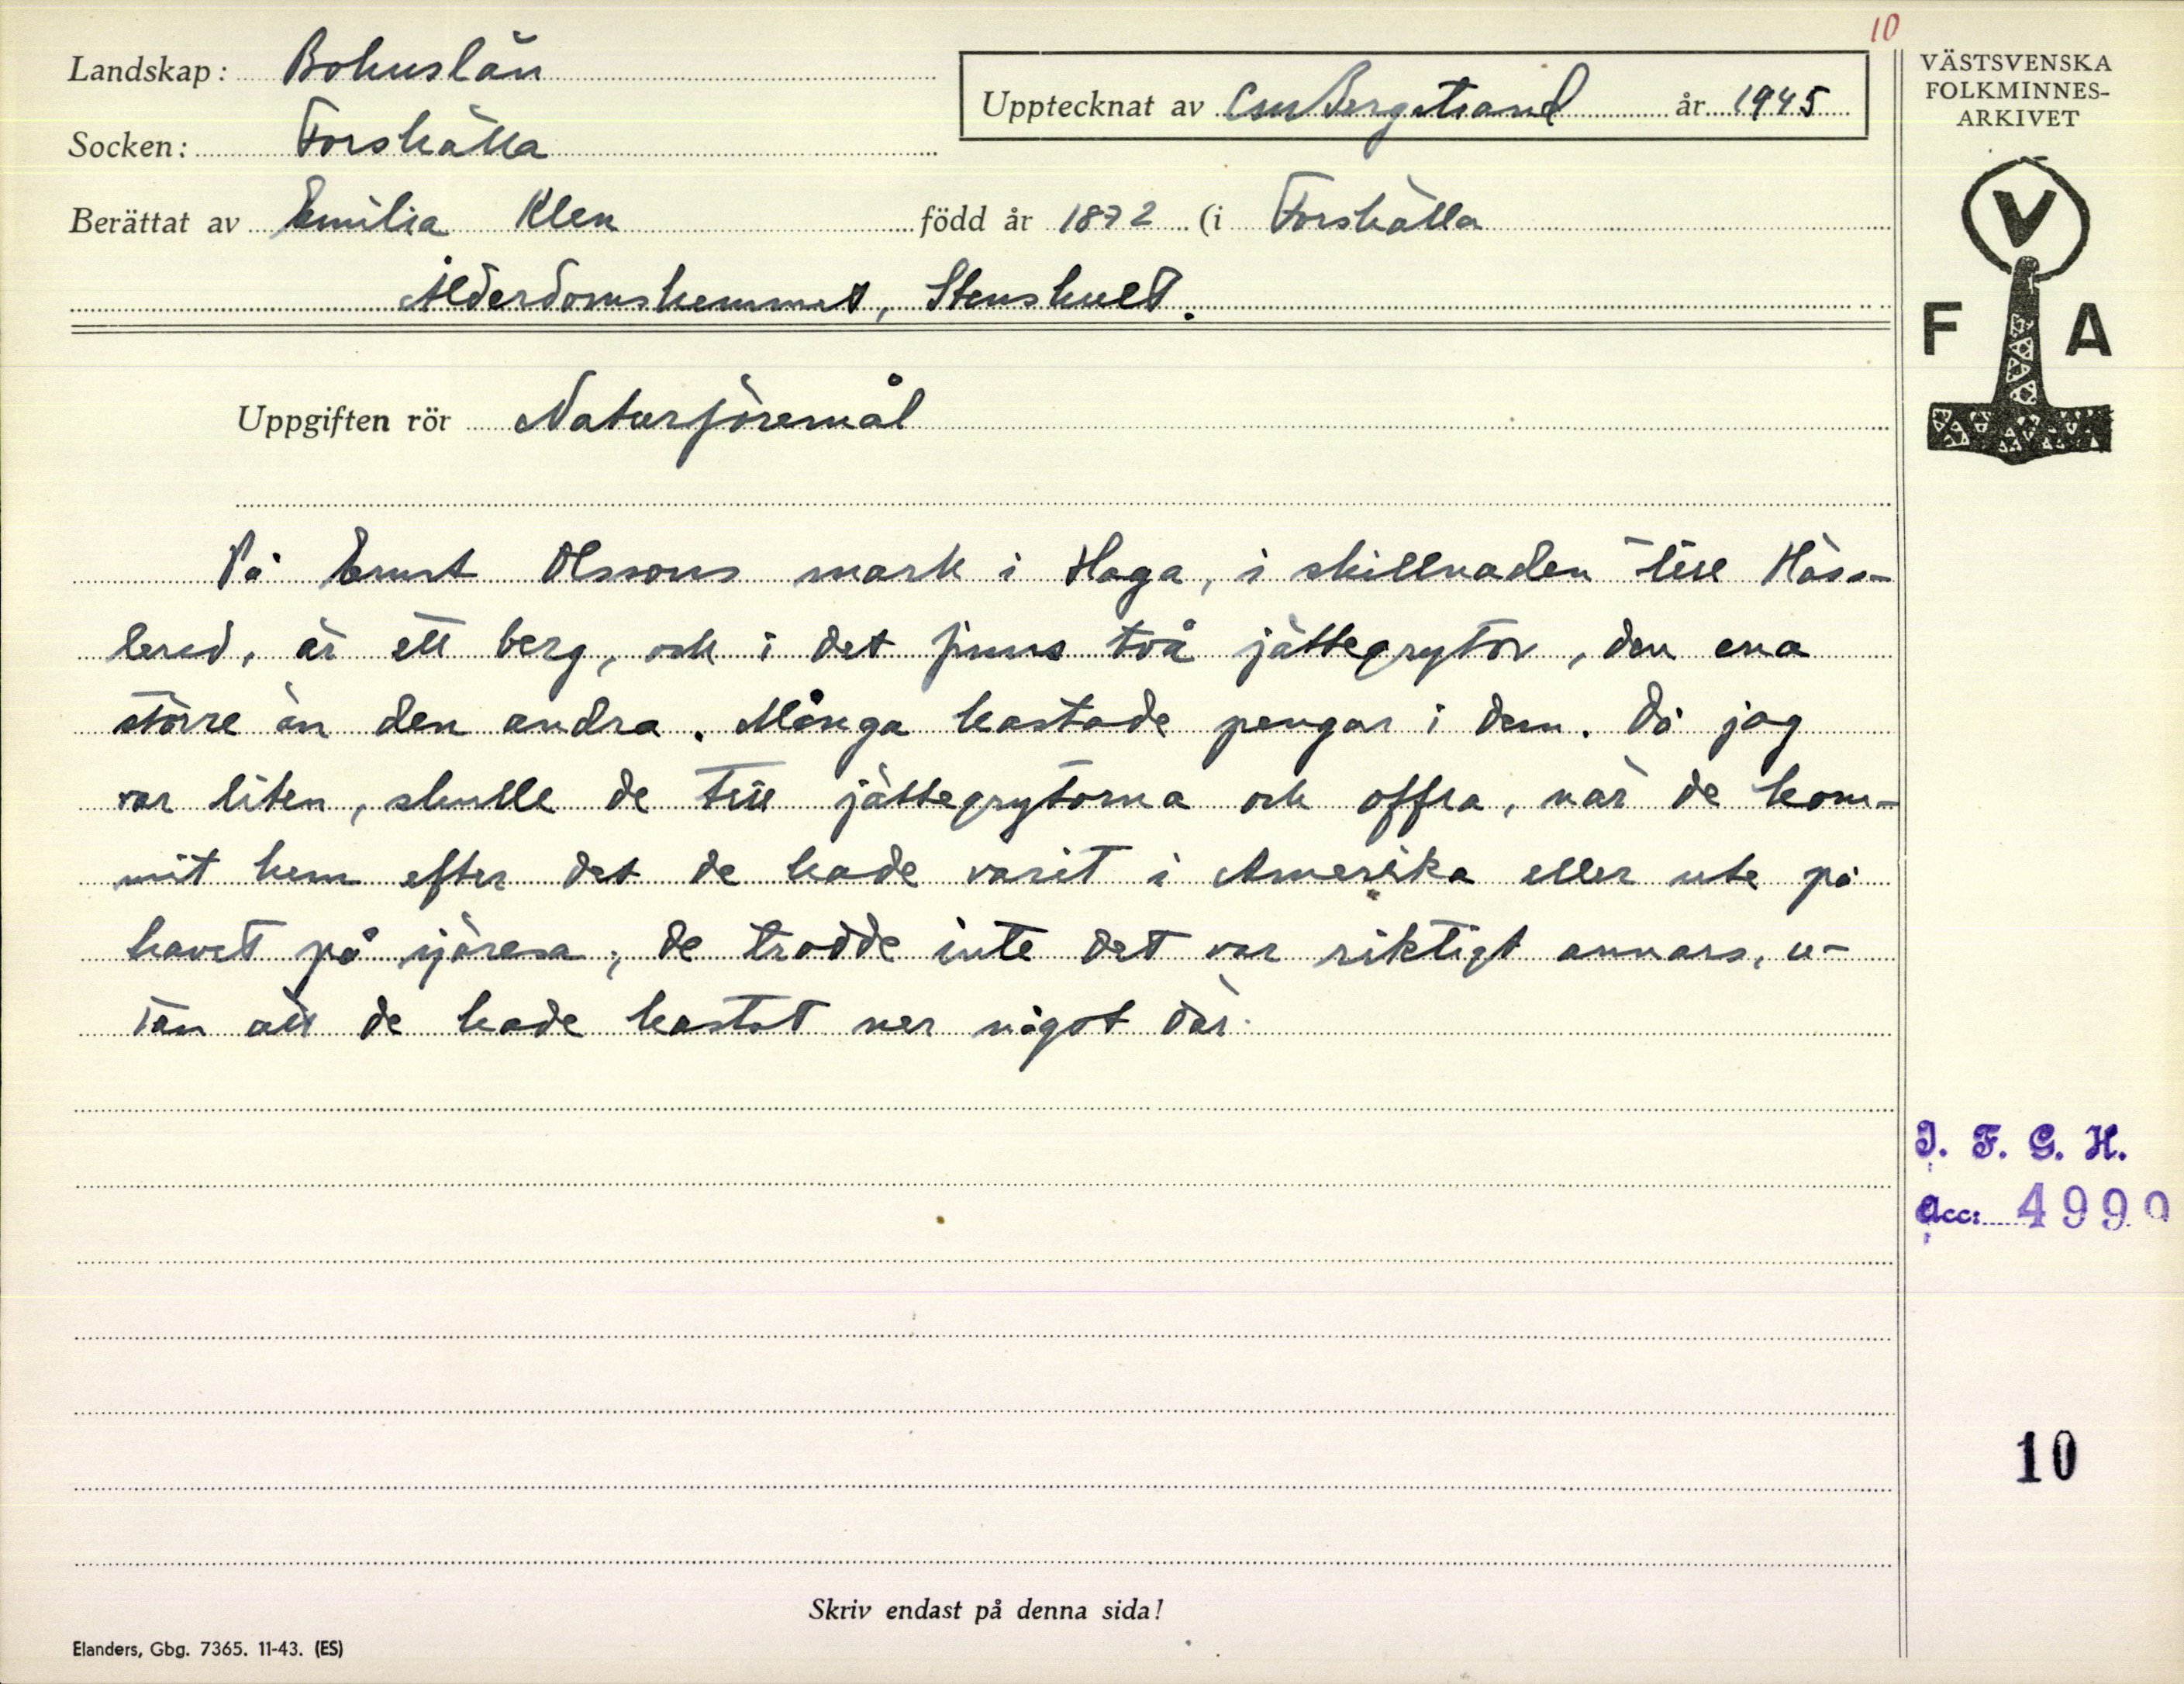 10
Landskap: Bohuslän
Upptecknat av CM Bergstrand år 1945
Socken: Forshälla
Berättat av Emilia Klen född år 1872 (i Forshälla
Ålderdomshemmet, Stenshult.
VÄSTSVENSKA
FOLKMINNES-
ARKIVET
V
F A
Uppgiften rör Naturföremål
På Ernst Olssons mark i Haga, i skillnaden till Häss-
lered, är ett berg, och i det finns två jättegrytor, den ena
större än den andra. Många kastade pengar i dem. Då jag
var liten, skulle de till jättegrytorna och offra, när de kom-
mit hem efter det de hade varit i Amerika eller ute på
havet på sjöresa; de trodde inte det var riktigt annars, u-
tan att de hade kastat ner något där.
I. F. G. H.
Acc: 4990
10
Skriv endast på denna sida!
Elanders, Gbg. 7365. 11-43. (ES)